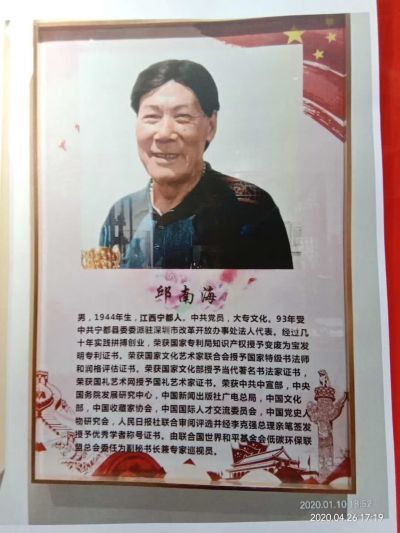 邱南海
男，1944年生，江西宁都人。中共党员，大专文化。93年受
中共宁都县委委派驻深圳市改革开放办事处法人代表。经过几
十年实践拼搏创业，荣获国家专利局知识产权授予变废为宝发
明专利证书。荣获国家文化艺术家联合会授予国家特级书法师
和润格评估证书。荣获国家文化部授予当代著名书法家证书，
荣获国礼艺术网授予国礼艺术家证书。荣获中共中宣部，中央
国务院发展研究中心，中国新闻出版社广电总局，中国文化
部，中国收藏家协会，中国国际人才交流委员会，中国党史人
物研究会，人民日报社联合审阅评选并经李克强总理亲笔签发
授予优秀学者称号证书。由联合国世界和平基金会低碳环保联
盟总会委任为副秘书长兼专家巡视员。
2020.01.10 18:52
2020.04.26 17:19